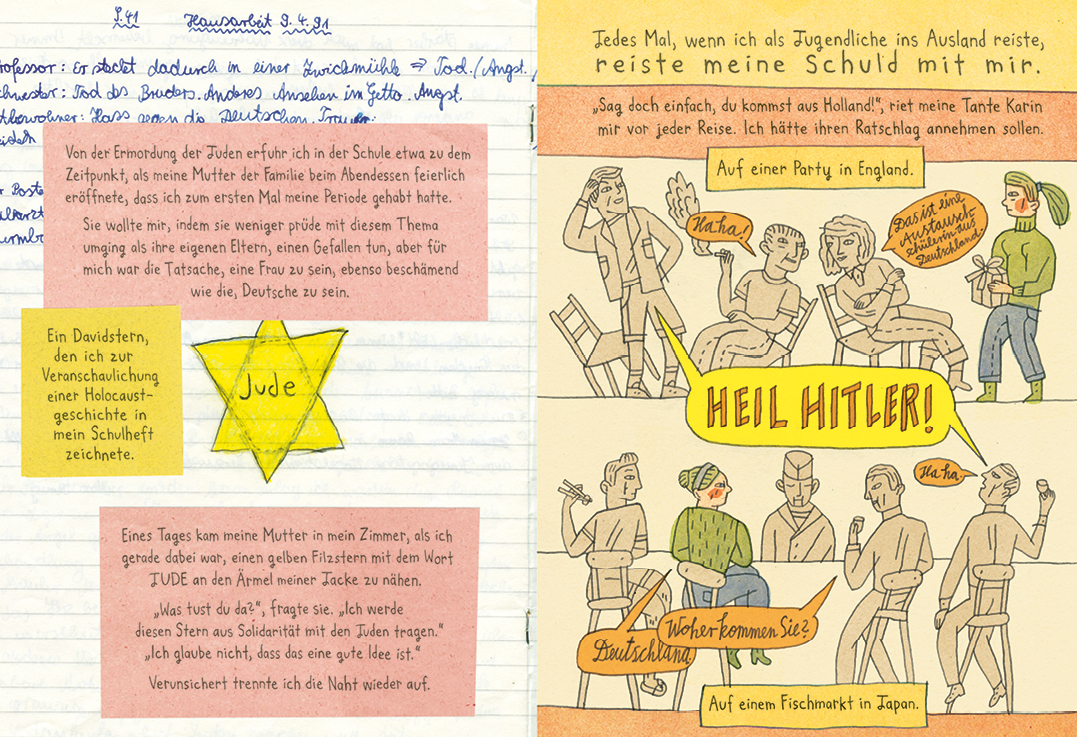 S.41 Hausarbeit 9.4.91
rofessor: Er steckt dadurch in einer Zwickmühle ⇒ Tod./Angst./
chwester: Tod des Bruders. Anderes Ansehen im Getto. Angst.
ttbewohner: Hass gegen die Deutschen. Trauer.
eideln
r Poste
ularzt
Von der Ermordung der Juden erfuhr ich in der Schule etwa zu dem
Zeitpunkt, als meine Mutter der Familie beim Abendessen feierlich
eröffnete, dass ich zum ersten Mal meine Periode gehabt hatte.
Sie wollte mir, indem sie weniger prüde mit diesem Thema
umging als ihre eigenen Eltern, einen Gefallen tun, aber für
mich war die Tatsache, eine Frau zu sein, ebenso beschämend
wie die, Deutsche zu sein.
Ein Davidstern,
den ich zur
Veranschaulichung
einer Holocaust-
geschichte in
mein Schulheft
zeichnete.
Jude
Eines Tages kam meine Mutter in mein Zimmer, als ich
gerade dabei war, einen gelben Filzstern mit dem Wort
JUDE an den Ärmel meiner Jacke zu nähen.
„Was tust du da?“, fragte sie. „Ich werde
diesen Stern aus Solidarität mit den Juden tragen.“
„Ich glaube nicht, dass das eine gute Idee ist.“
Verunsichert trennte ich die Naht wieder auf.
Jedes Mal, wenn ich als Jugendliche ins Ausland reiste,
reiste meine Schuld mit mir.
„Sag doch einfach, du kommst aus Holland!“, riet meine Tante Karin
mir vor jeder Reise. Ich hätte ihren Ratschlag annehmen sollen.
Auf einer Party in England.
Haha!
Das ist eine
Austausch-
schülerin aus
Deutschland.
HEIL HITLER!
Ha ha.
Woher kommen Sie?
Deutschland.
Auf einem Fischmarkt in Japan.